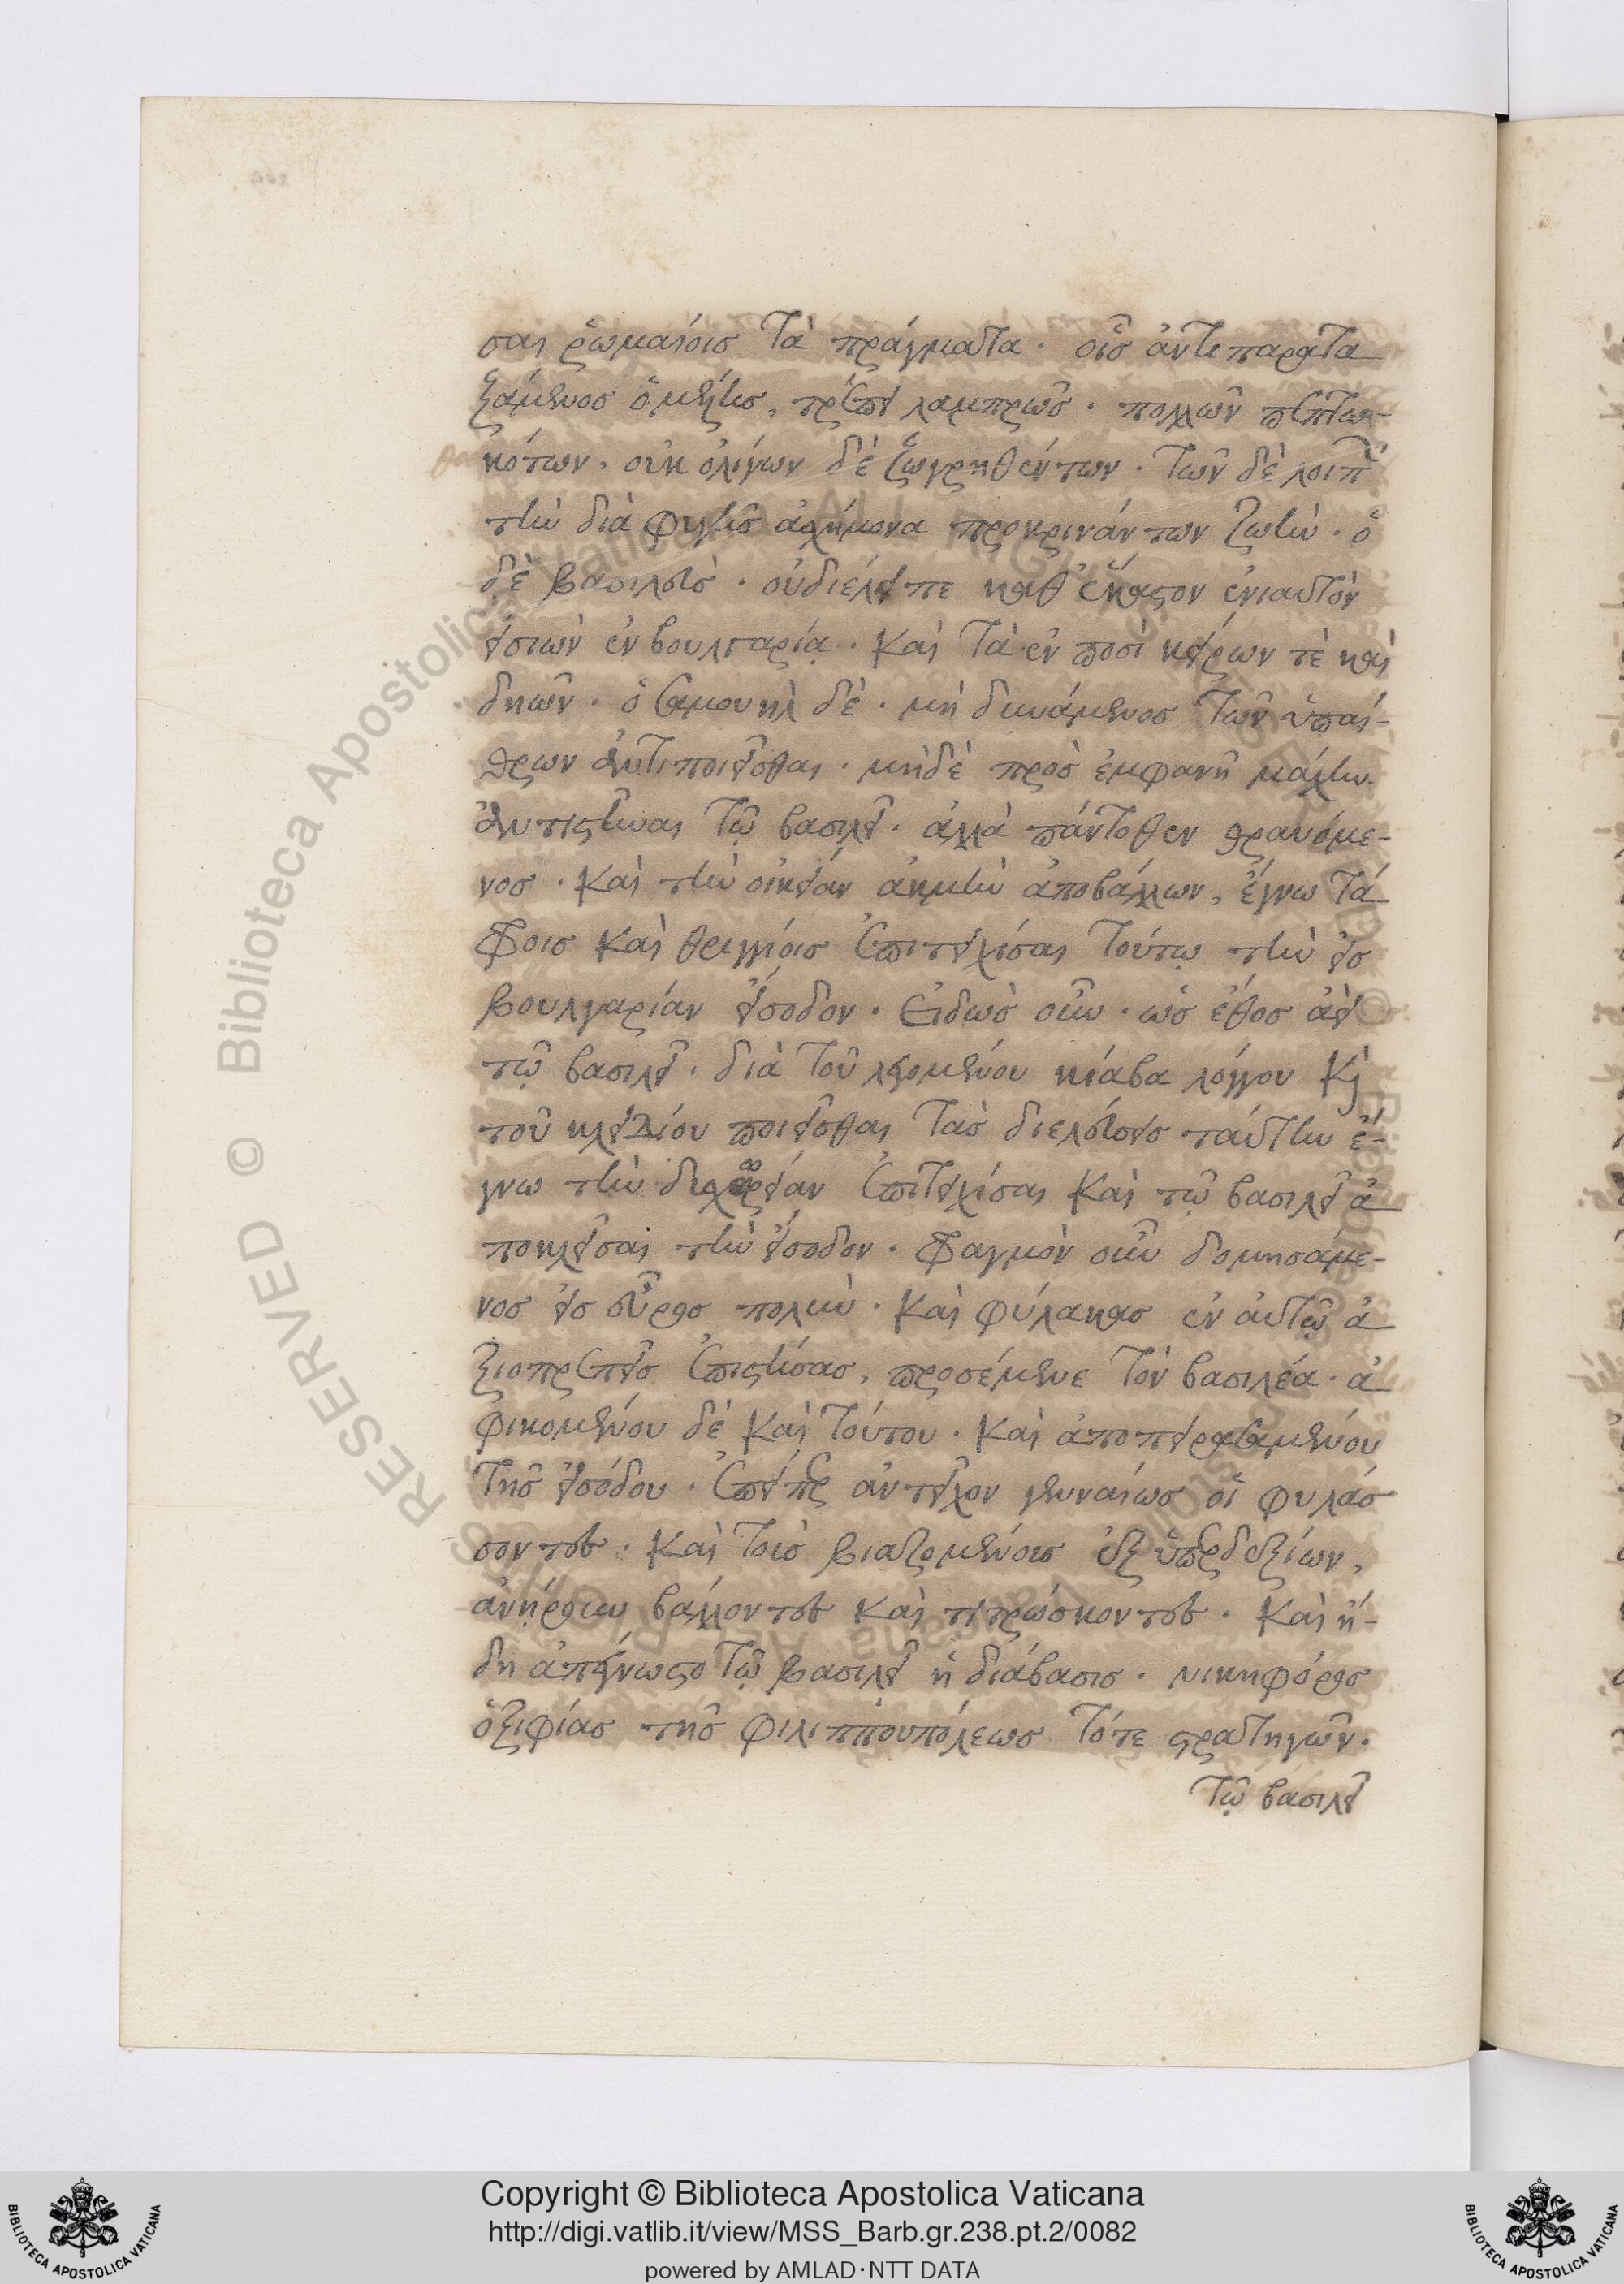 σαι ῥωμαίοις τὰ πράγματα. οἷς ἀντιπαρατα
ξάμενος ὁ μέγας, τρέπει λαμπρῶς. πολλῶν πεπτω-
κότων. οὐκ ὀλίγων δὲ ζωγρηθέντων. τῶν δὲ λοιπῶν
τὴν διὰ φυγῆς ἀσχήμονα προκρινάντων ζωήν. ὁ
δὲ βασιλεὺς. οὐ διέλειπε καθ' ἕκαστον ἐνιαυτὸν
εἰσιὼν ἐν βουλγαρία. καὶ τὰ ἐν ποσὶ κείρων τὲ καὶ
δηῶν. ὁ σαμουὴλ δὲ. μὴ δυνάμενος τῶν ὑπαί-
θρων ἀντιποιεῖσθαι. μηδὲ πρὸς ἐμφανῆ μάχην
ἀντιστῆναι τῷ βασιλεῖ. ἀλλὰ πάντοθεν θραυόμε-
νος. καὶ τὴν οἰκείαν ἀκμὴν ἀποβάλλων, ἔγνω τά
φροις καὶ θριγγίοις ἐπιτειχίσαι τούτῳ τὴν εἰς
βουλγαρίαν εἴσοδον. εἰδὼς οὖν. ὡς ἔθος ἀεὶ
τῷ βασιλεῖ. διὰ τοῦ λεγομένου κιάβα λόγγου καὶ
τοῦ κλειδίου ποιεῖσθαι τὰς διελεύσεις ταύτην ἔ-
γνω τὴν δυσχέρειαν ἐπιτειχίσαι καὶ τῷ βασιλεῖ ἀ
ποκλεῖσαι τὴν εἴσοδον. φραγμὸν οὖν δομησάμε-
νος εἰς εὖρος πολὺν. καὶ φύλακας ἐν αὐτῷ ἀ
ξιοπρεπεῖς ἐπιστήσας, προσέμενε τὸν βασιλέα. ἀ
φικομένου δὲ καὶ τούτου. καὶ ἀποπειρασαμένου
τῆς εἰσόδου. ἐπείπερ ἀντεῖχον γενναίως οἱ φυλάσ
σοντες. καὶ τοὺς βιαζομένους ἐξ ὑπερδεξίων,
ἀνῄρουν βάλλοντες καὶ τιτρώσκοντες. καὶ ἤ-
δη ἀπέγνωστο τῷ βασιλεῖ ἡ διάβασις. νικηφόρος
ὁ ξιφίας τῆς φιλιππουπόλεως τότε στρατηγῶν.
τῷ βασιλεῖ
Copyright © Biblioteca Apostolica Vaticana
http://digi.vatlib.it/view/MSS_Barb.gr.238.pt.2/0082
powered by AMLAD·NTT DATA